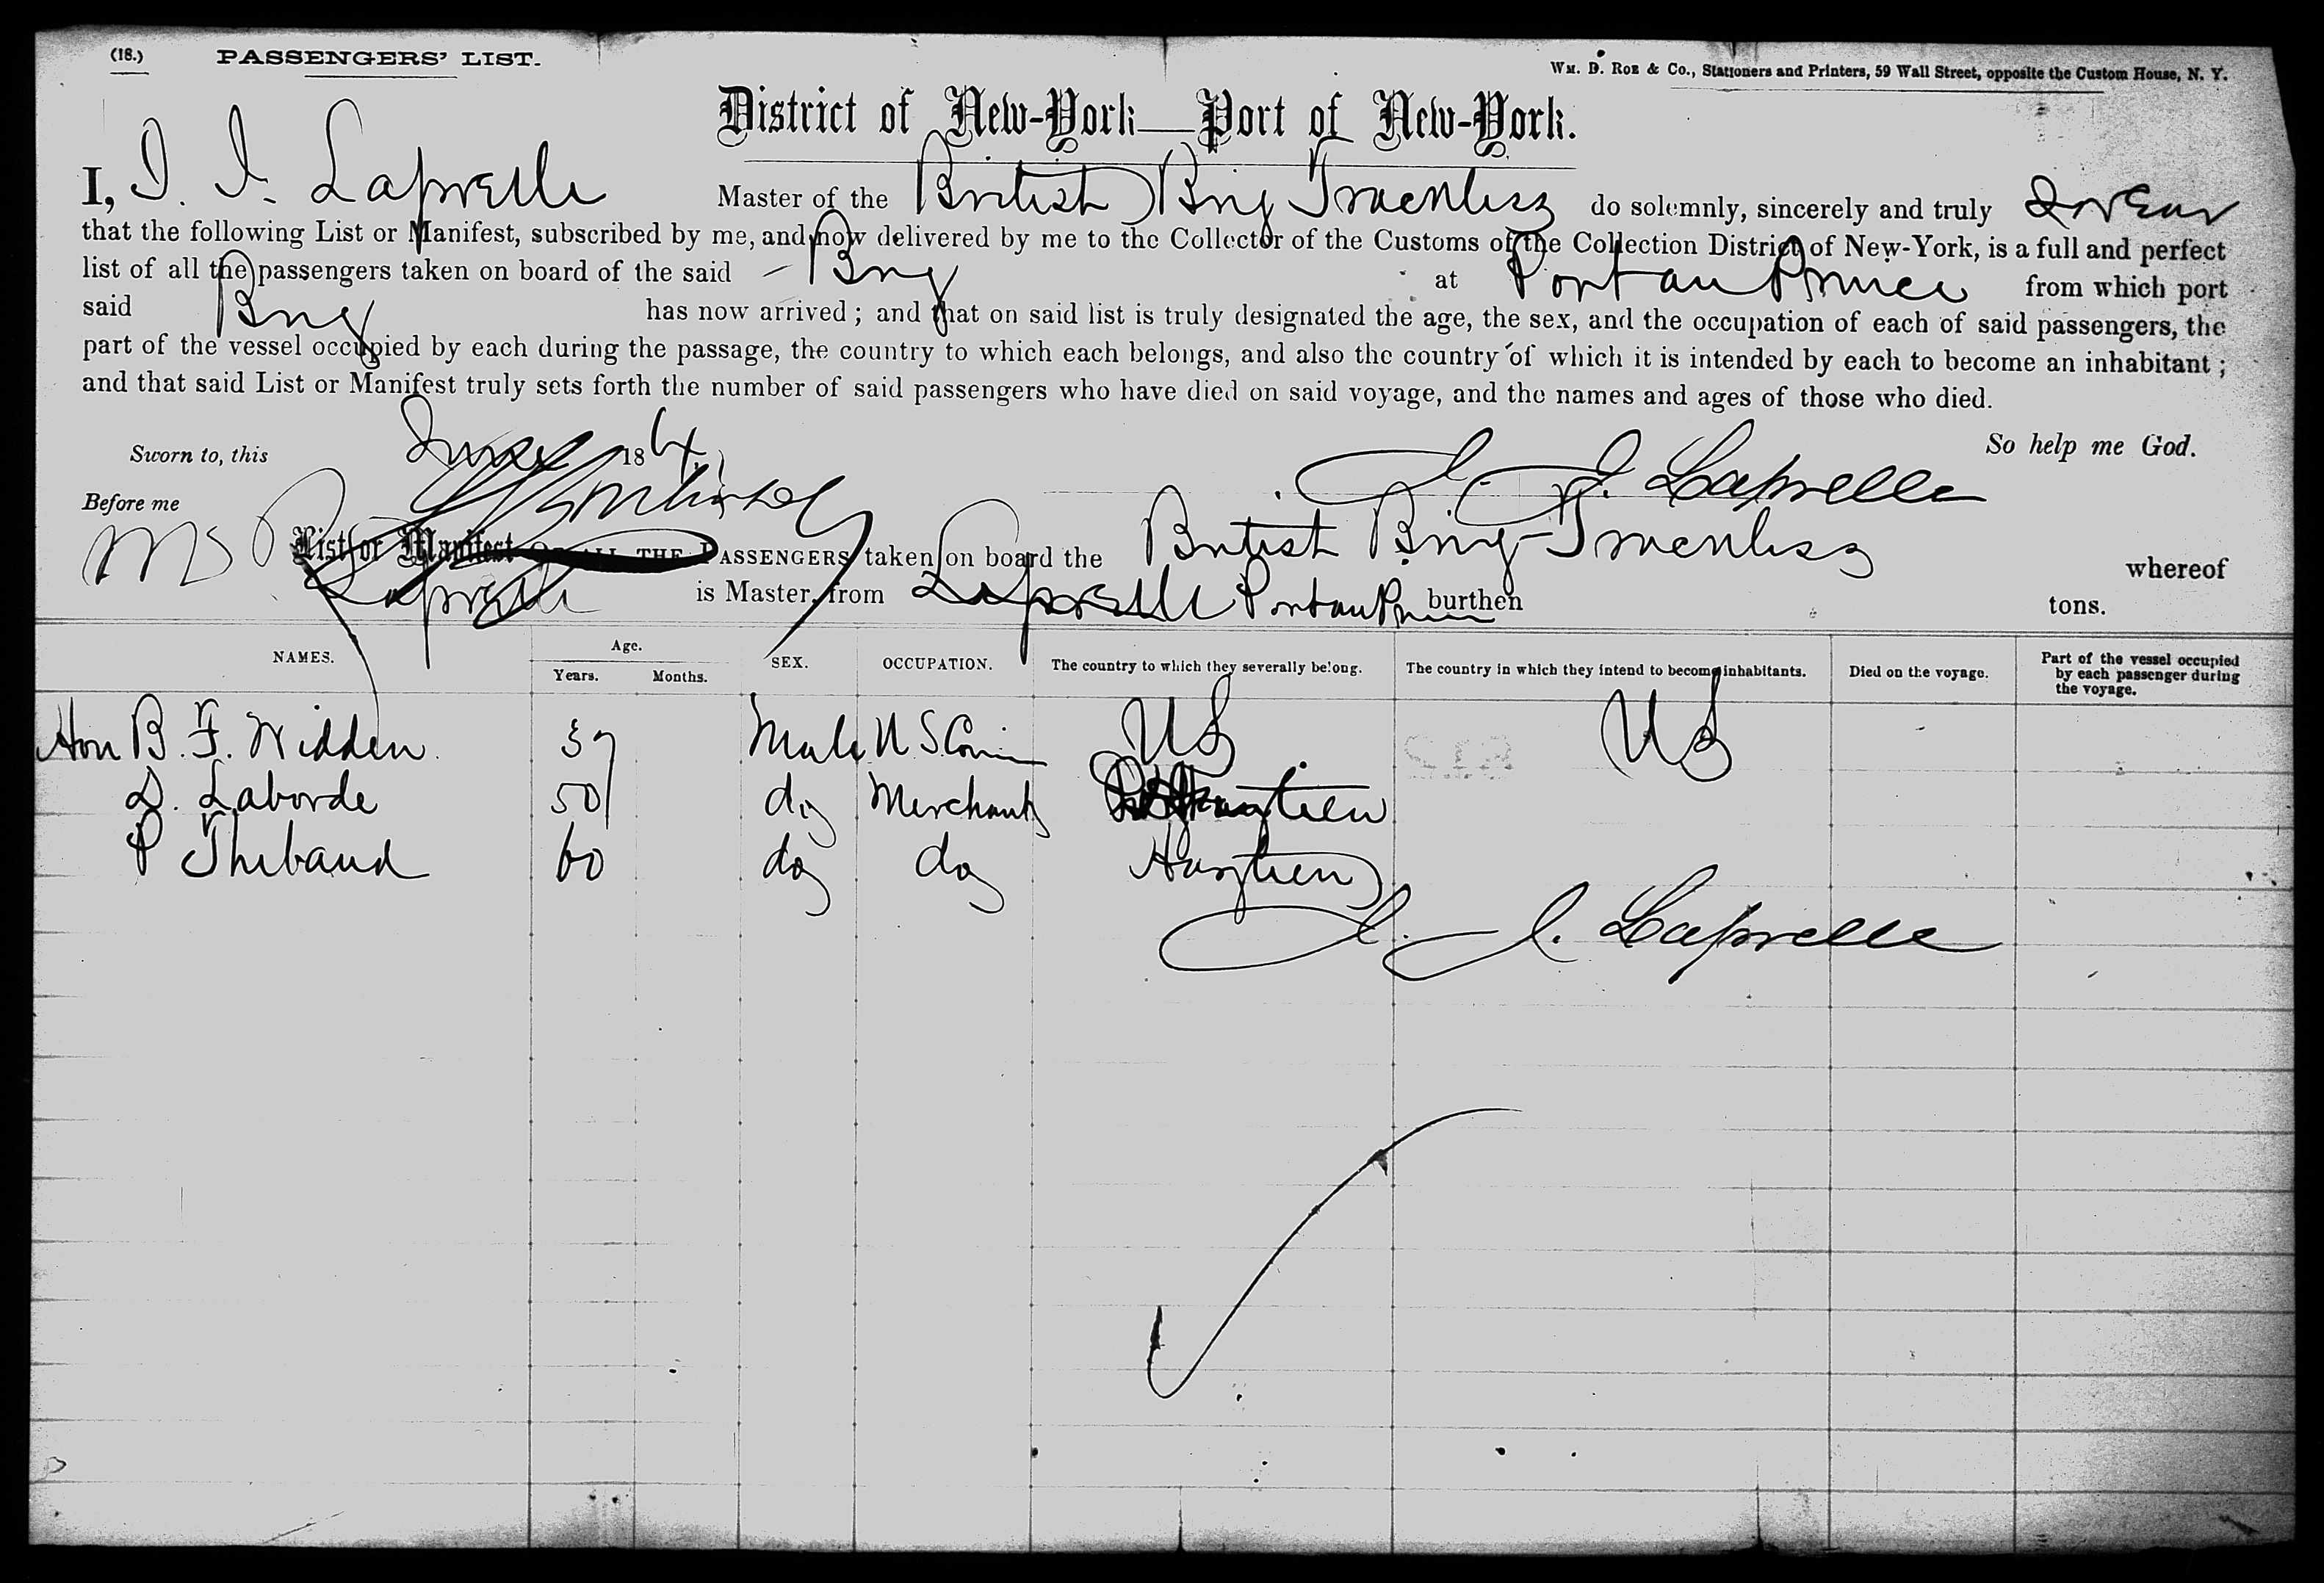 (18.) PASSENGERS' LIST.
WM. D. ROE & Co., Stationers and Printers, 59 Wall Street, opposite the Custom House, N. Y.
District of New-York—Port of New-York.
I, J. J. Laprelle Master of the British Brig do solemnly, sincerely and truly swear
that the following List or Manifest, subscribed by me, and now delivered by me to the Collector of the Customs of the Collection District of New-York, is a full and perfect
list of all the passengers taken on board of the said Brig at Port au Prince from which port
said Brig has now arrived; and that on said list is truly designated the age, the sex, and the occupation of each of said passengers, the
part of the vessel occupied by each during the passage, the country to which each belongs, and also the country of which it is intended by each to become an inhabitant;
and that said List or Manifest truly sets forth the number of said passengers who have died on said voyage, and the names and ages of those who died.
So help me God.
Sworn to, this 186
Before me
J. J. Laprelle
List or Manifest OF ALL THE PASSENGERS taken on board the British Brig whereof
Laprelle is Master, from Laprelle Port au Prince burthen tons.
NAMES. Age. Years. Months. SEX. OCCUPATION. The country to which they severally belong. The country in which they intend to become inhabitants. Died on the voyage. Part of the vessel occupied by each passenger during the voyage.
Hon B. F. Widden 37 Male U S Com US US
D. Laborde 50 do Merchant Haytien
P Thebaud 60 do do Haytien
J. J. Laprelle